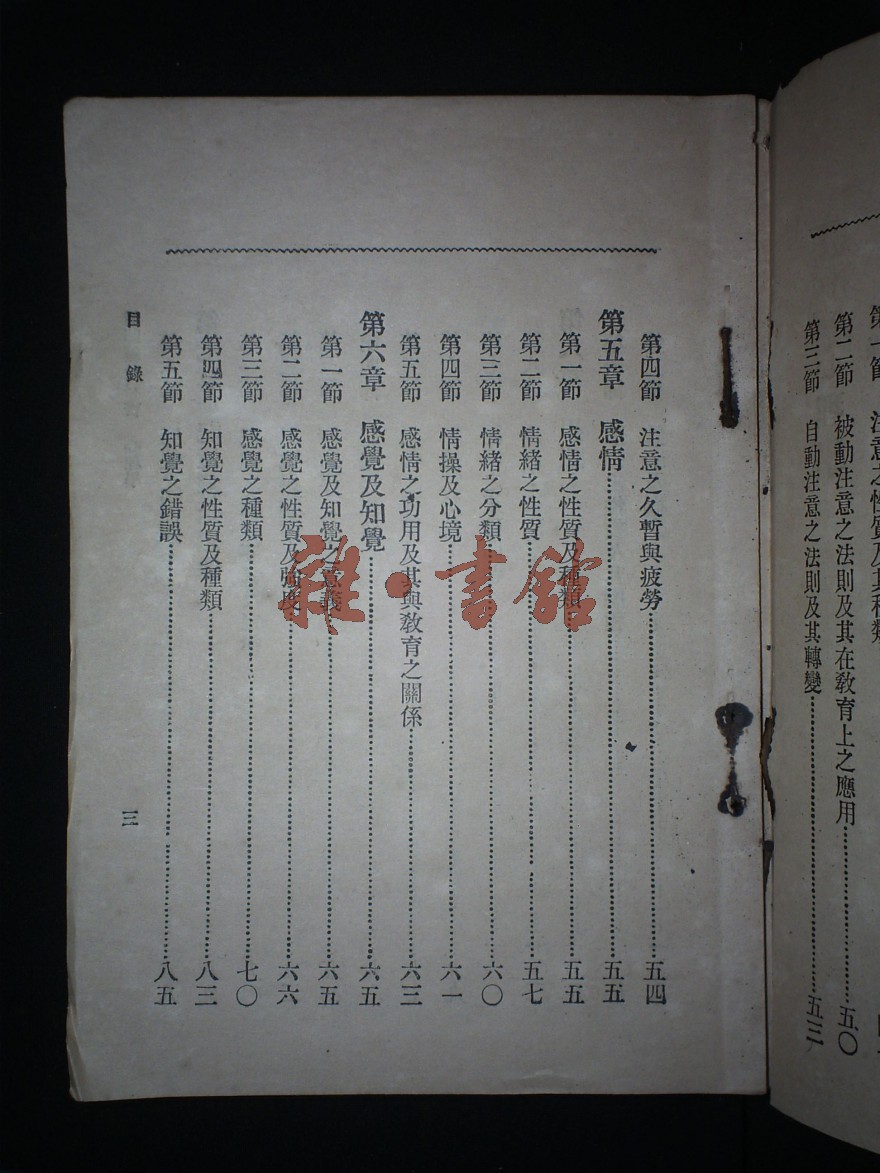 第二節　被動注意之法則及其在教育上之應用……五〇
第三節　自動注意之法則及其轉變……五三
第四節　注意之久暫與疲勞……五四
第五章　感情……五五
第一節　感情之性質及種類……五五
第二節　情緒之性質……五七
第三節　情緒之分類……六〇
第四節　情操及心境……六一
第五節　感情之功用及其與教育之關係……六三
第六章　感覺及知覺……六五
第一節　感覺及知覺之意義……六五
第二節　感覺之性質及強度……六六
第三節　感覺之種類……七〇
第四節　知覺之性質及種類……八三
第五節　知覺之錯誤……八五
目錄
三
雜·書館